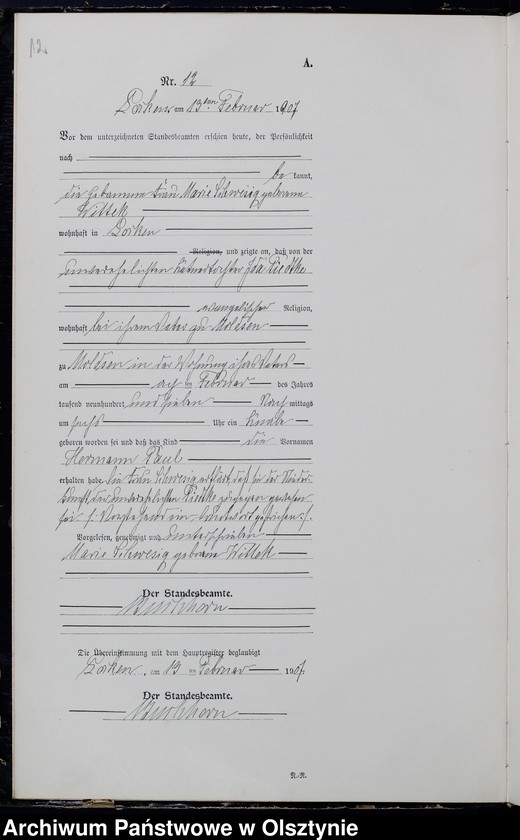 12.
A.
Nr. 12
am 13ten Februar 1907
Vor dem unterzeichneten Standesbeamten erschien heute, der Persönlichkeit
nach
be kannt,
die Hebamme Frau Marie Schwesig geborene
Wittek
wohnhaft in
Religion, und zeigte an, daß von der
unverehelichten Ida
evangelischer Religion,
wohnhaft bei ihrem Vater zu Moldsen
zu Moldsen in der Wohnung ihres Vaters
am acht ten Februar des Jahres
tausend neunhundert und sieben Nach mittags
um sechs Uhr ein Knabe
geboren worden sei und daß das Kind die Vornamen
Hermann Paul
erhalten habe. Die Frau Schwesig erklärt, daß sie bei der Nieder-
kunft der unverehelichten zugegen gewesen
sei /: Vorstehend ein Druckwort gestrichen :/.
Vorgelesen, genehmigt und unterschrieben
Marie Schwesig geborene Wittek
Der Standesbeamte.
Die Übereinstimmung mit dem Hauptregister beglaubigt
am 13 ten Februar 1907.
Der Standesbeamte.
Archiwum Państwowe w Olsztynie